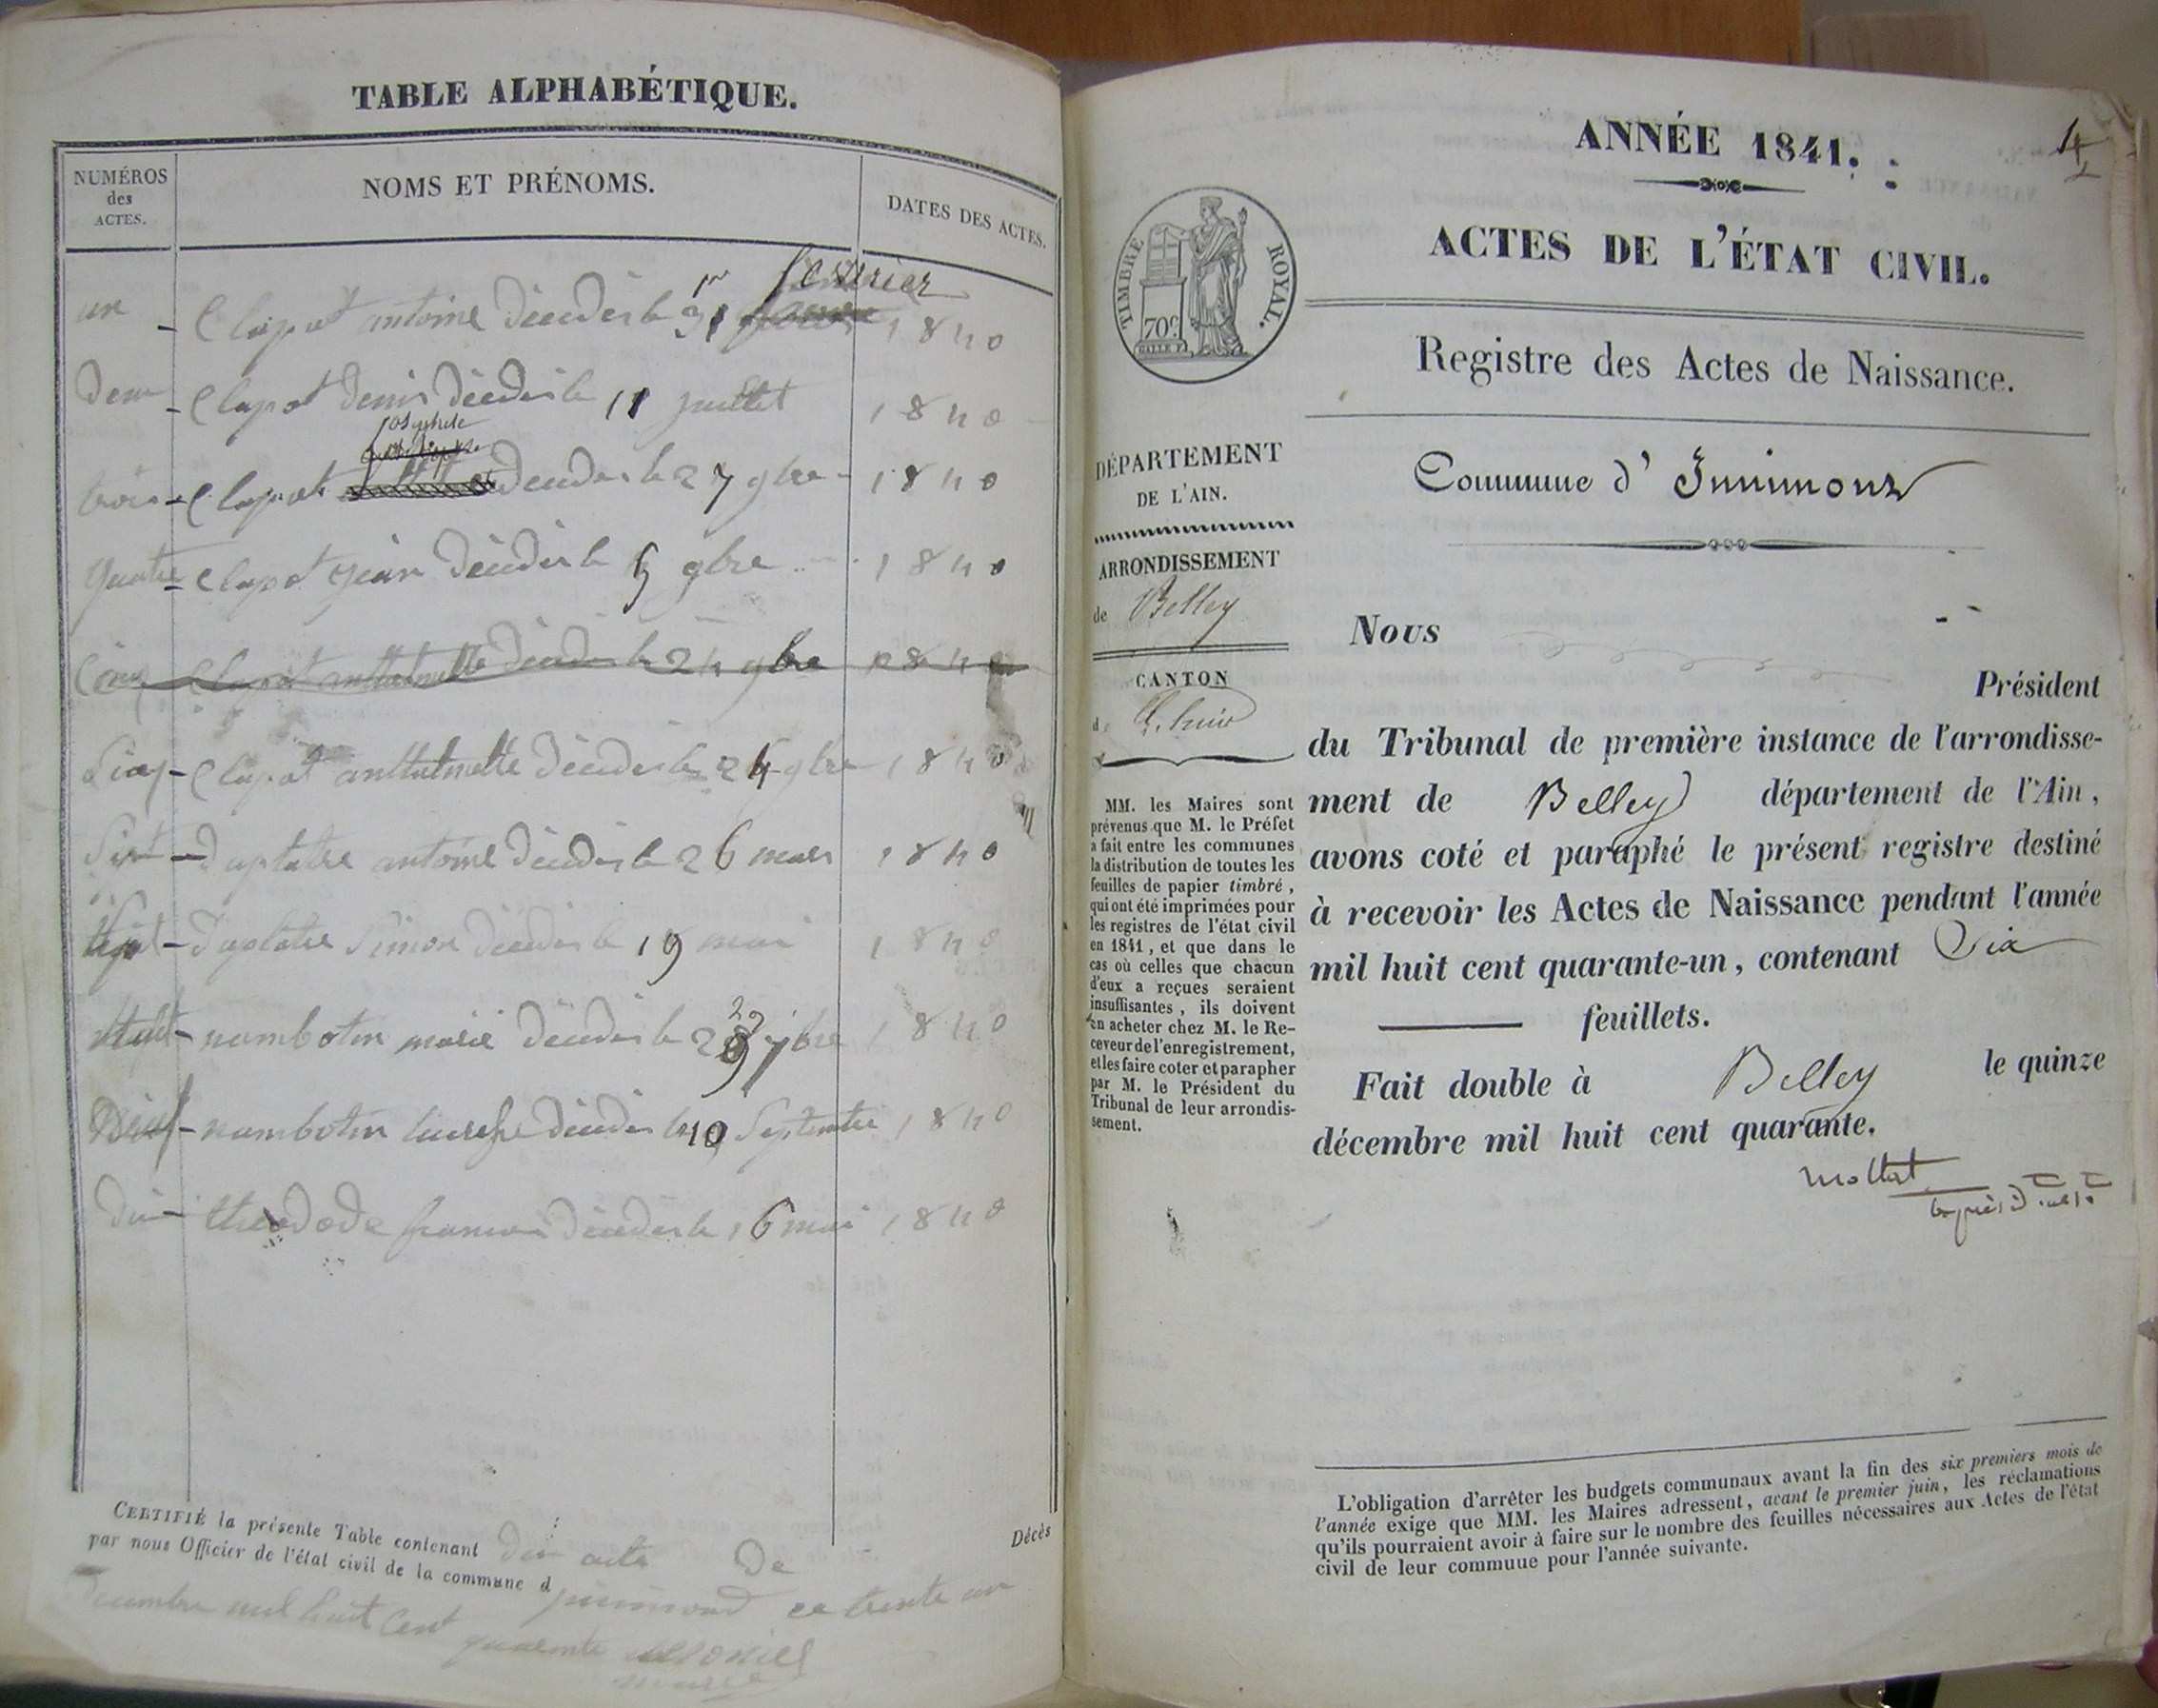 TABLE ALPHABÉTIQUE.
NUMÉROS
des
ACTES.
NOMS ET PRÉNOMS.
DATES DES ACTES.
fevrier
un - Clapot antoine décédés le 1er 1840
Deux - Clapot Denis décédés le 11 juillet 1840
josephete
trois - Clapot décédés le 27 9bre - 1840
quatre - Clapot jean décédés le 5 9bre 1840
Cinq Clapot décédés le 24 9bre 1840
Cinq - Clapot décédés le 24 9bre 1840
Six - antoine décédés le 26 mars 1840
Sept - Simon décédés le 19 mai 1840
Huit - nambotin marie décédés le 29 7bre 1840
Neuf - nambotin décédés le 10 Septembre 1840
dix - francois décédés le 16 mai 1840
CERTIFIÉ la présente Table contenant dix acte De Décès
par nous Officier de l'état civil de la commune d ce trente un
décembre mil huit Cent quarante
ANNÉE 1841.
ACTES DE L'ÉTAT CIVIL.
TIMBRE ROYAL.
70c
Registre des Actes de Naissance.
Commune d' Innimont
DÉPARTEMENT
DE L'AIN.
ARRONDISSEMENT
de Belley
CANTON
de Lhuis
MM. les Maires sont
prévenus que M. le Préfet
a fait entre les communes
la distribution de toutes les
feuilles de papier timbré,
qui ont été imprimées pour
les registres de l'état civil
en 1841, et que dans le
cas où celles que chacun
d'eux a reçues seraient
insuffisantes, ils doivent
en acheter chez M. le Re-
ceveur de l'enregistrement,
et les faire coter et parapher
par M. le Président du
Tribunal de leur arrondis-
sement.
Nous
Président
du Tribunal de première instance de l'arrondisse-
ment de Belley département de l'Ain,
avons coté et paraphé le présent registre destiné
à recevoir les Actes de Naissance pendant l'année
mil huit cent quarante-un, contenant Six
feuillets.
Fait double à Belley le quinze
décembre mil huit cent quarante.
L'obligation d'arrêter les budgets communaux avant la fin des six premiers mois de
l'année exige que MM. les Maires adressent, avant le premier juin, les réclamations
qu'ils pourraient avoir à faire sur le nombre des feuilles nécessaires aux Actes de l'état
civil de leur commune pour l'année suivante.